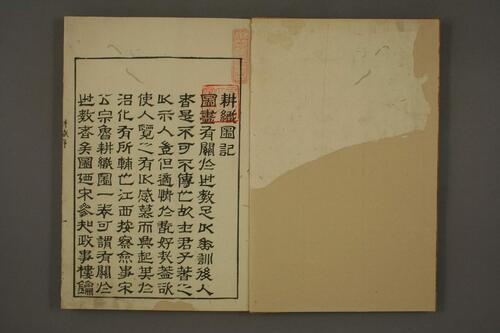 耕織圖記
圖畫有關於世教足以垂訓後人
者是不可不傳也故士君子著之
以示人豈但適情於翫好哉蓋欲
使人覽之有以感慕而興起其於
治化有所輔也江西按察僉事宋
公宗魯耕織圖一卷可謂有關於
世教者矣圖迺宋參知政事樓鑰